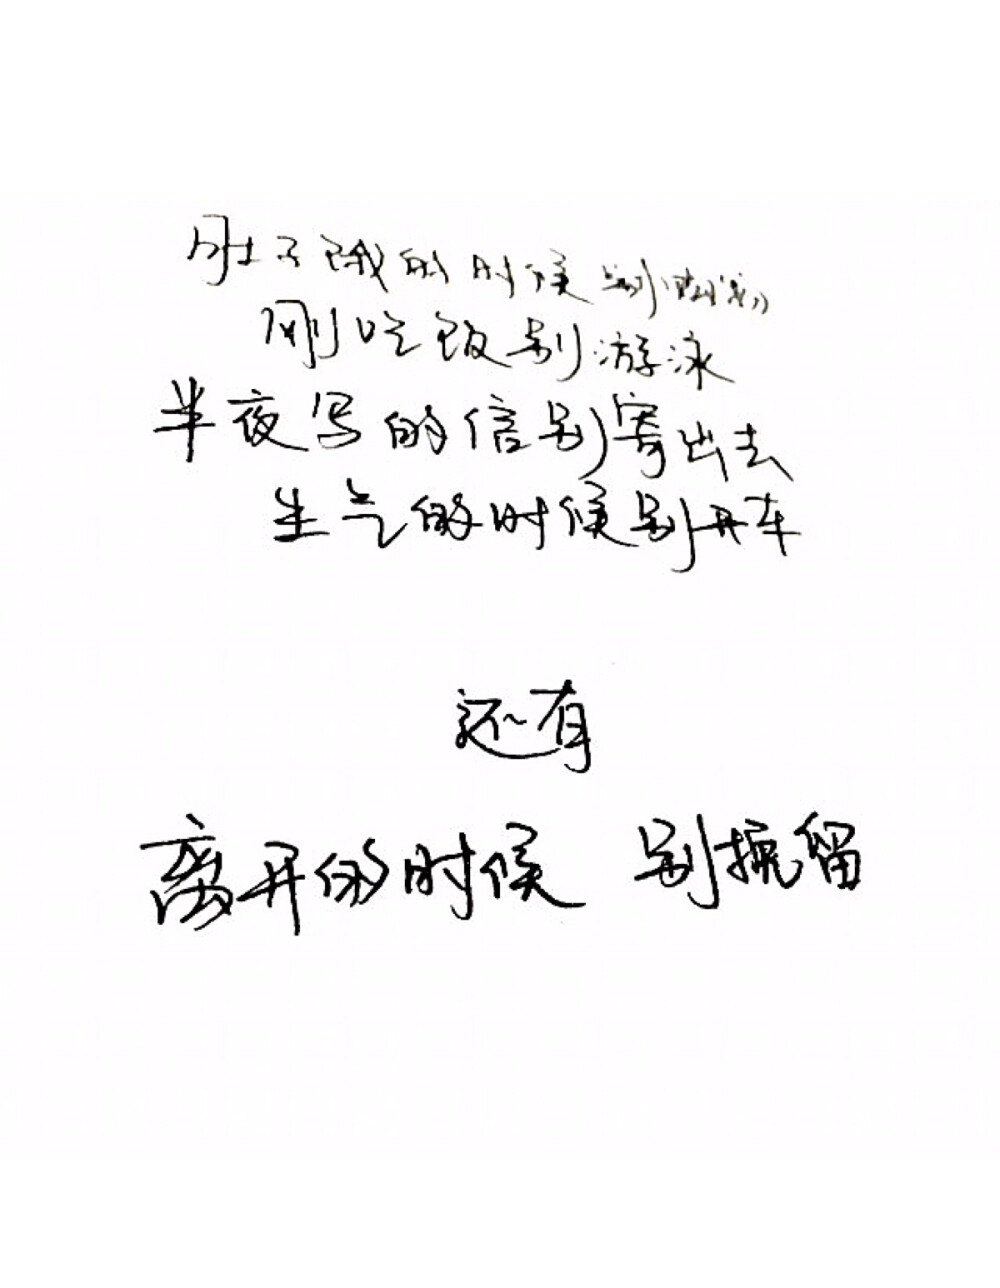 肚子饿的时候别
刚吃饭别游泳
半夜写的信别寄出去
生气的时候别开车
还有
离开的时候 别挽留